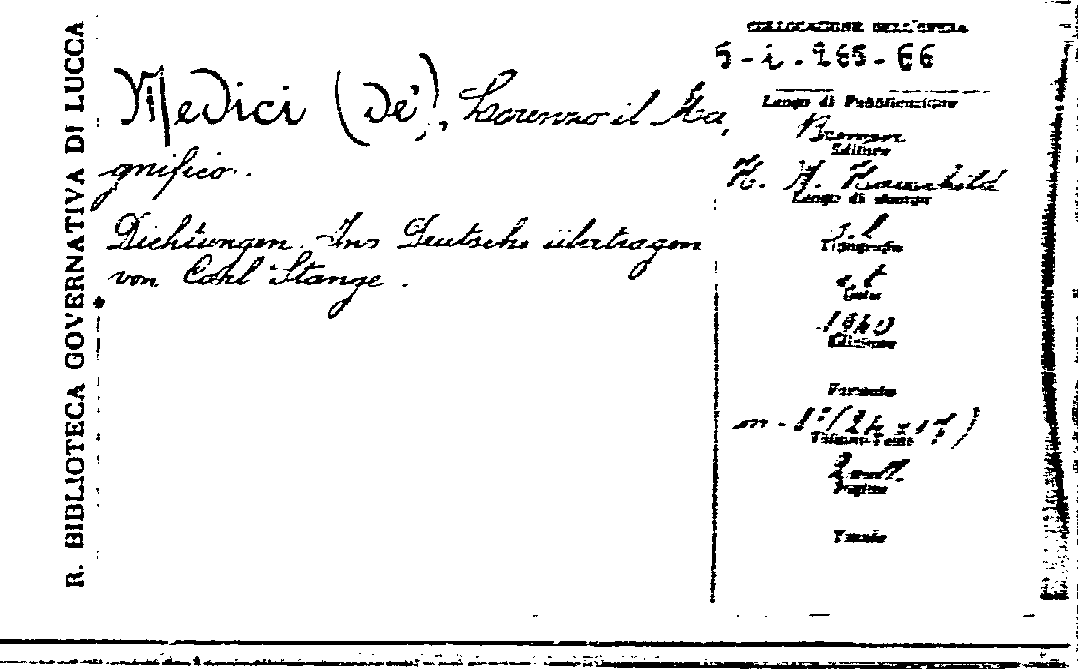 R. BIBLIOTECA GOVERNATIVA DI LUCCA
Medici (de'), Lorenzo il Ma,
gnifico.
Dichtungen. Ins Deutsche übertragen
von Carl Stange.
COLLOCAZIONE DELL'OPERA
Luogo di Pubblicazione
Bremen
Editore
H. M. Hauschild
Luogo di stampa
s. l
Tipografo
s. t
Data
1940
Edizione
Formato
in - 8° (24 x 17)
Volumi-Parte
2 voll.
Pagine
Tavole